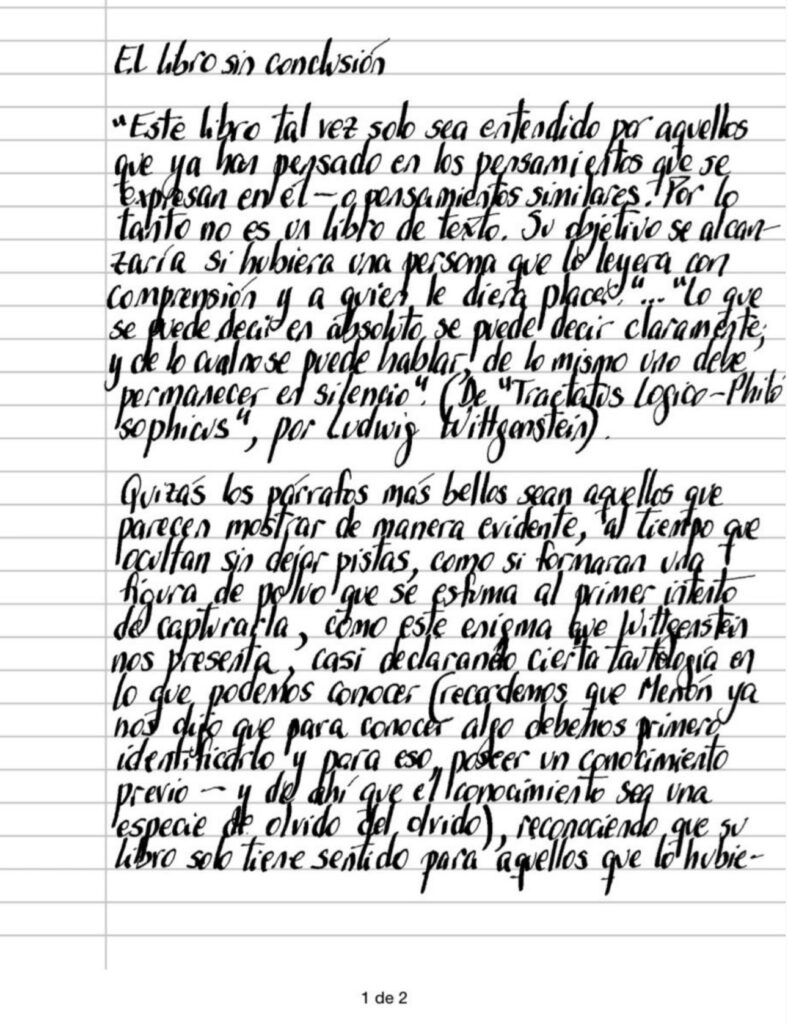 El libro sin conclusión
"Este libro tal vez solo sea entendido por aquellos
que ya han pensado en los pensamientos que se
expresan en él — o pensamientos similares. Por lo
tanto no es un libro de texto. Su objetivo se alcan-
zaría si hubiera una persona que lo leyera con
comprensión y a quien le diera placer."... "Lo que
se puede decir en absoluto se puede decir claramente;
y de lo cual no se puede hablar, de lo mismo uno debe
permanecer en silencio". (De "Tractatus Logico-Philo
sophicus", por Ludwig Wittgenstein).
Quizás los párrafos más bellos sean aquellos que
parecen mostrar de manera evidente, al tiempo que
ocultan sin dejar pistas, como si formaran una
figura de polvo que se esfuma al primer intento
de capturarla, como este enigma que Wittgenstein
nos presenta, casi declarando cierta tautología en
lo que podemos conocer (recordemos que Menón ya
nos dijo que para conocer algo debemos primero
identificarlo y para eso, poseer un conocimiento
previo — y de ahí que el conocimiento sea una
especie de olvido del olvido), reconociendo que su
libro solo tiene sentido para aquellos que lo hubie-
1 de 2